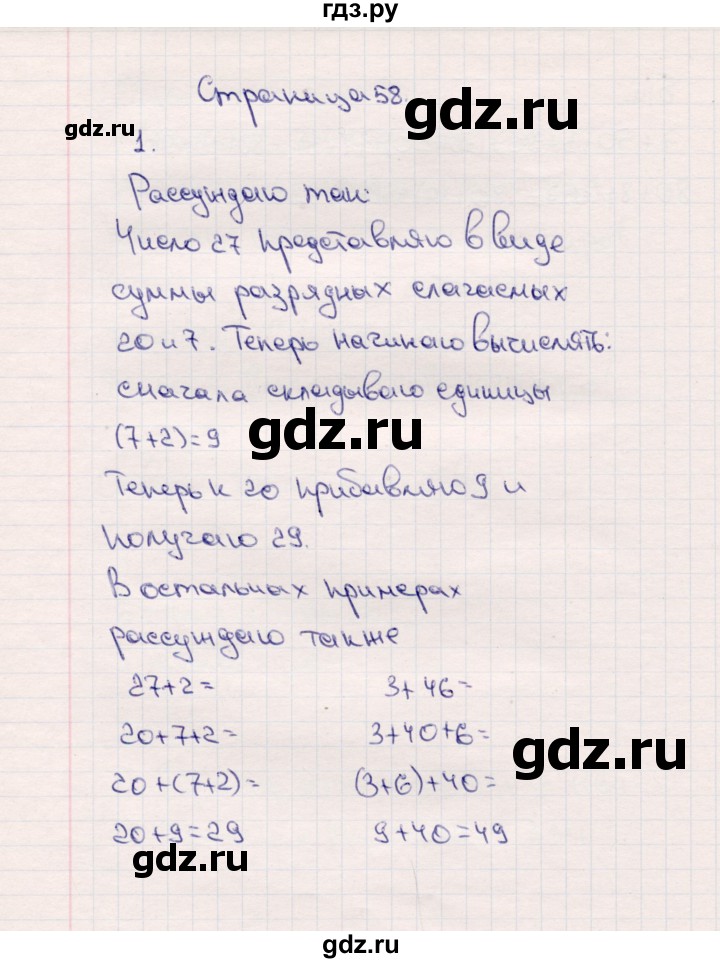 гдз.ру
Страница 58
gdz.ru
gdz.ru
1.
Рассуждаю так:
Число 27 представляю в виде
суммы разрядных слагаемых
20 и 7. Теперь начинаю вычислять:
сначала складываю единицы
(7+2)=9
gdz.ru
Теперь к 20 прибавляю 9 и
получаю 29.
В остальных примерах
рассуждаю также
27+2= 3+46=
20+7+2= 3+40+6=
gdz.ru
20+(7+2)= (3+6)+40=
20+9=29 9+40=49
gdz.ru
gdz.ru